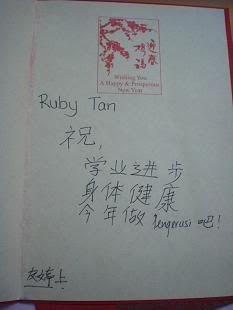 迎春
接福
Wishing You
A Happy & Prosperous
New Year
Ruby Tan
祝,
学业进步
身体健康
今年做 Pengerusi 吧!
上